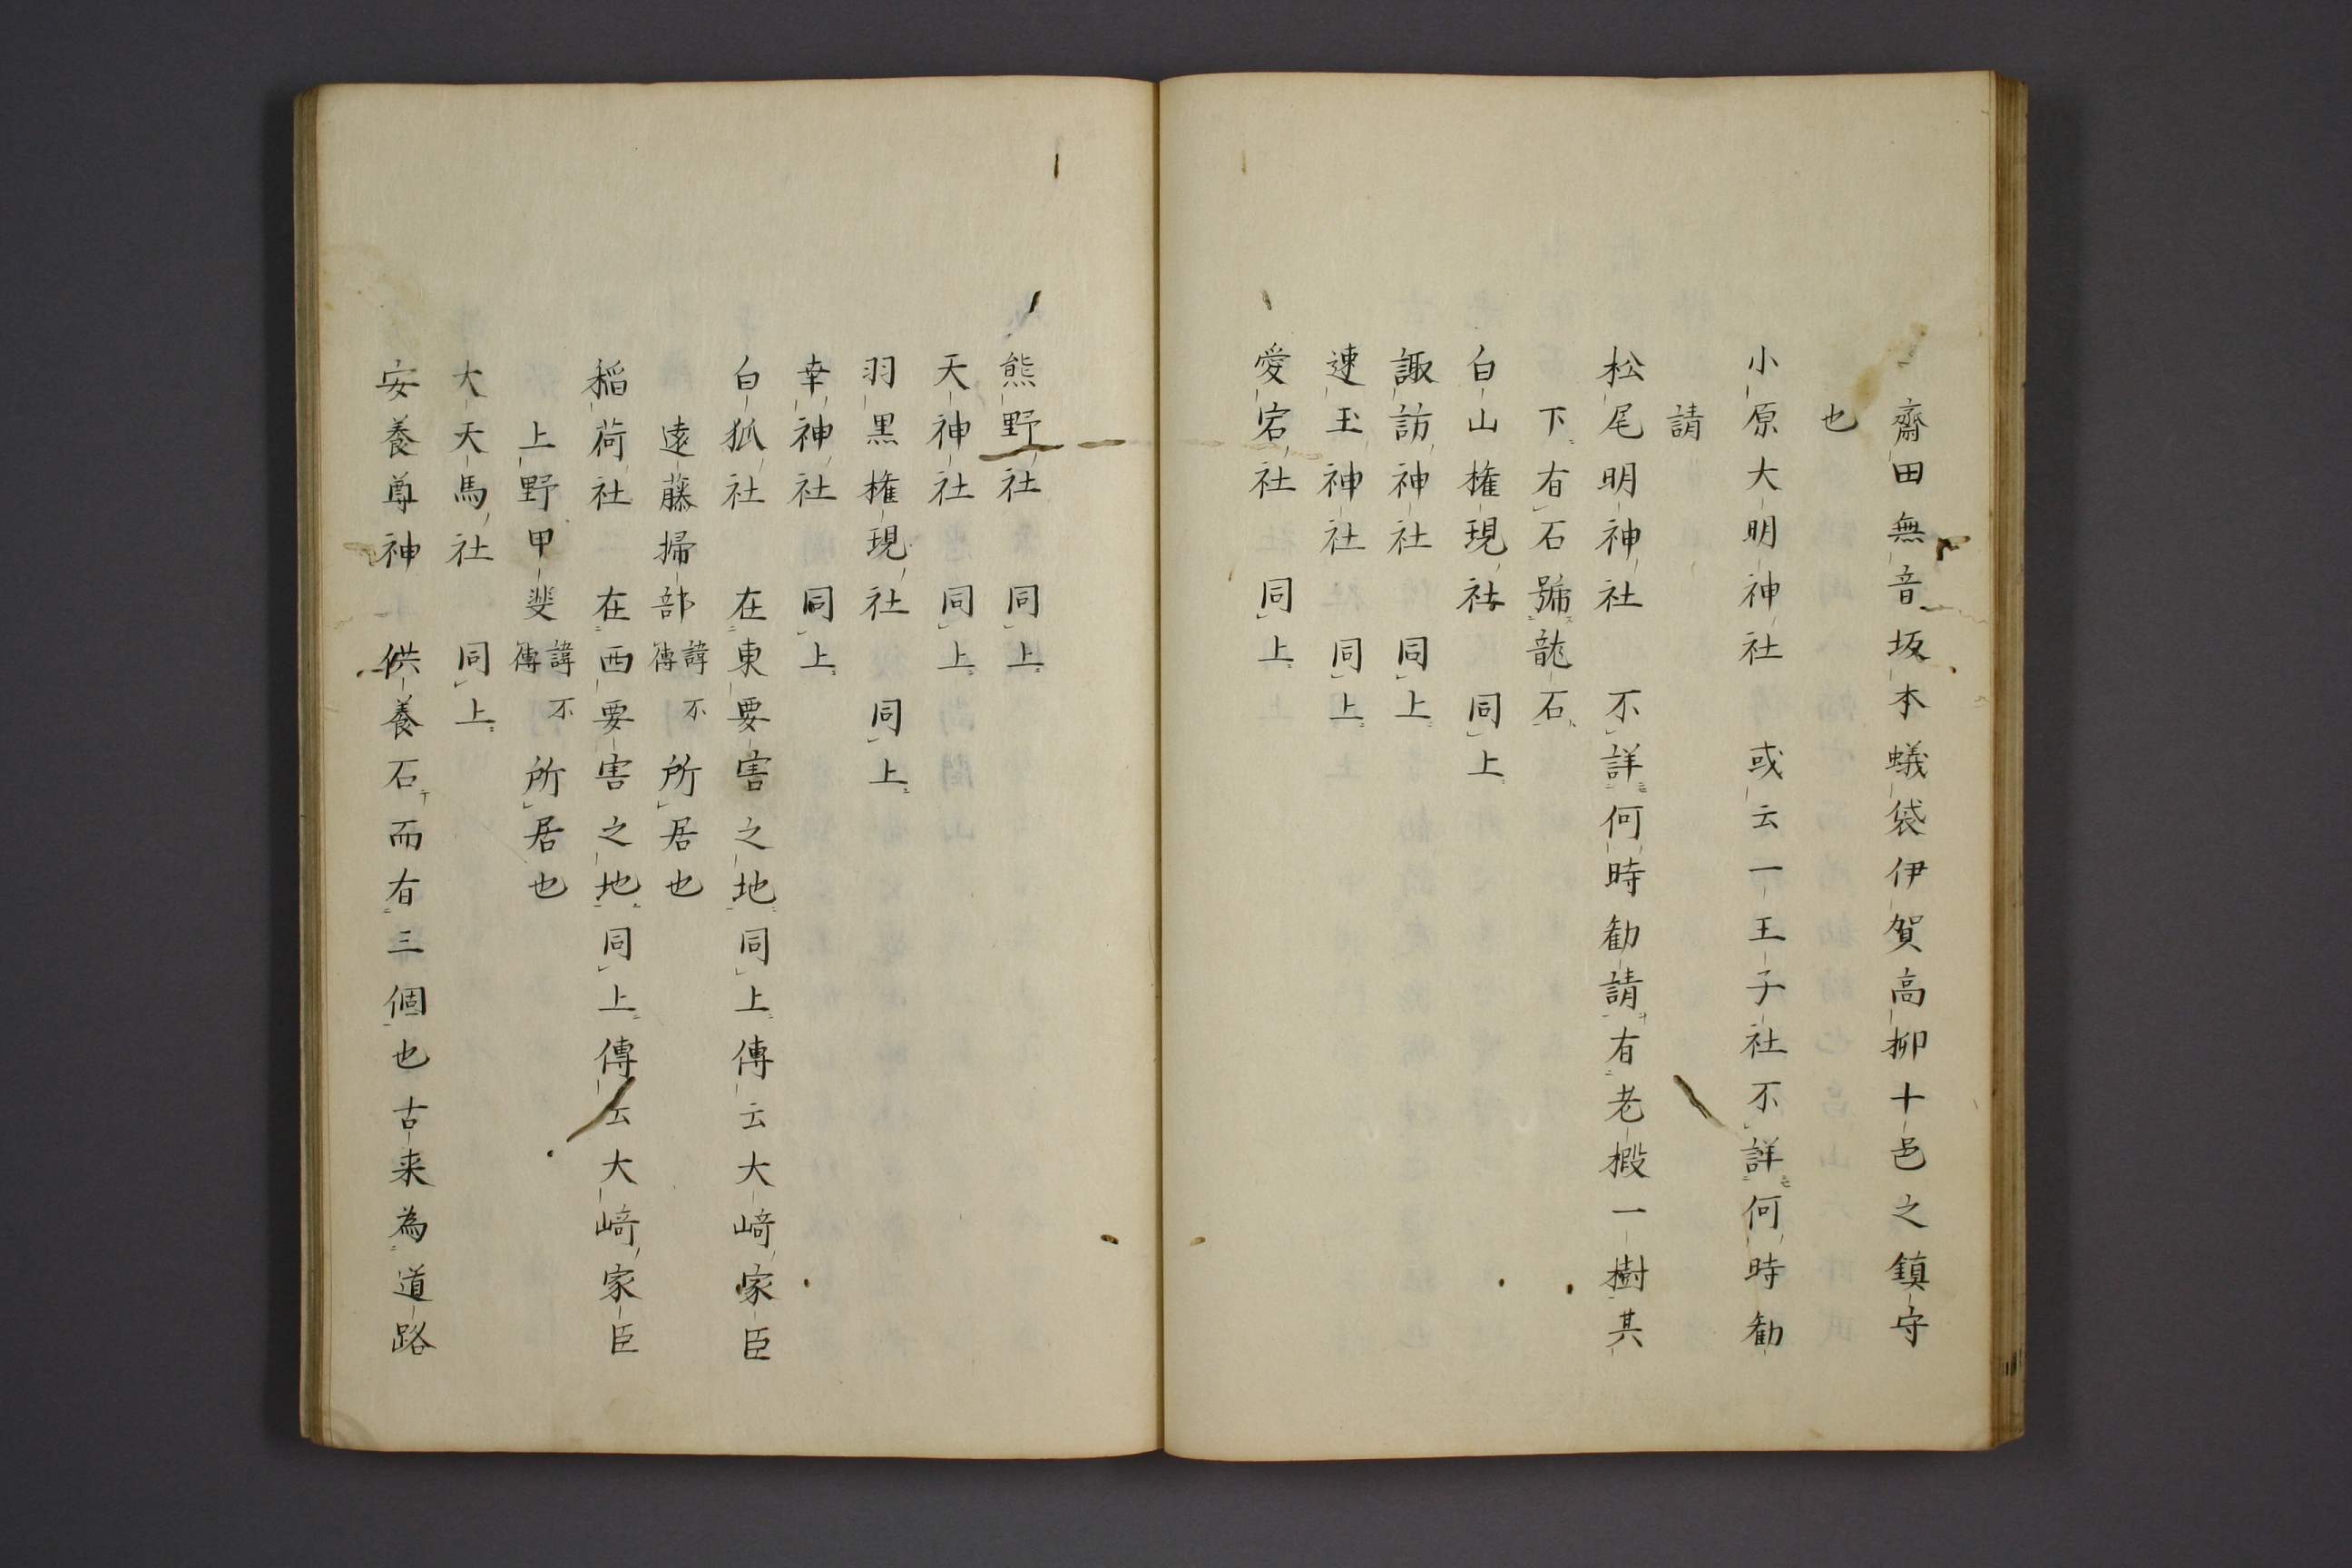 齋田無音坂本蟻袋伊賀高柳十邑之鎮守
也
小原大明神社　或云一王子社不詳何時勧
請
松尾明神社　不詳何時勧請有老椴一樹其
下有石號龍石
白山権現社　同上
諏訪神社　同上
速玉神社　同上
愛宕社　同上
熊野社　同上
天神社　同上
羽黒権現社　同上
幸神社　同上
白狐社　在東要害之地同上傳云大﨑家臣
遠藤掃部諱不傳所居也
稲荷社　在西要害之地同上傳云大﨑家臣
上野甲斐諱不傳所居也
大天馬社　同上
安養尊神　供養石而有三個也古来為道路